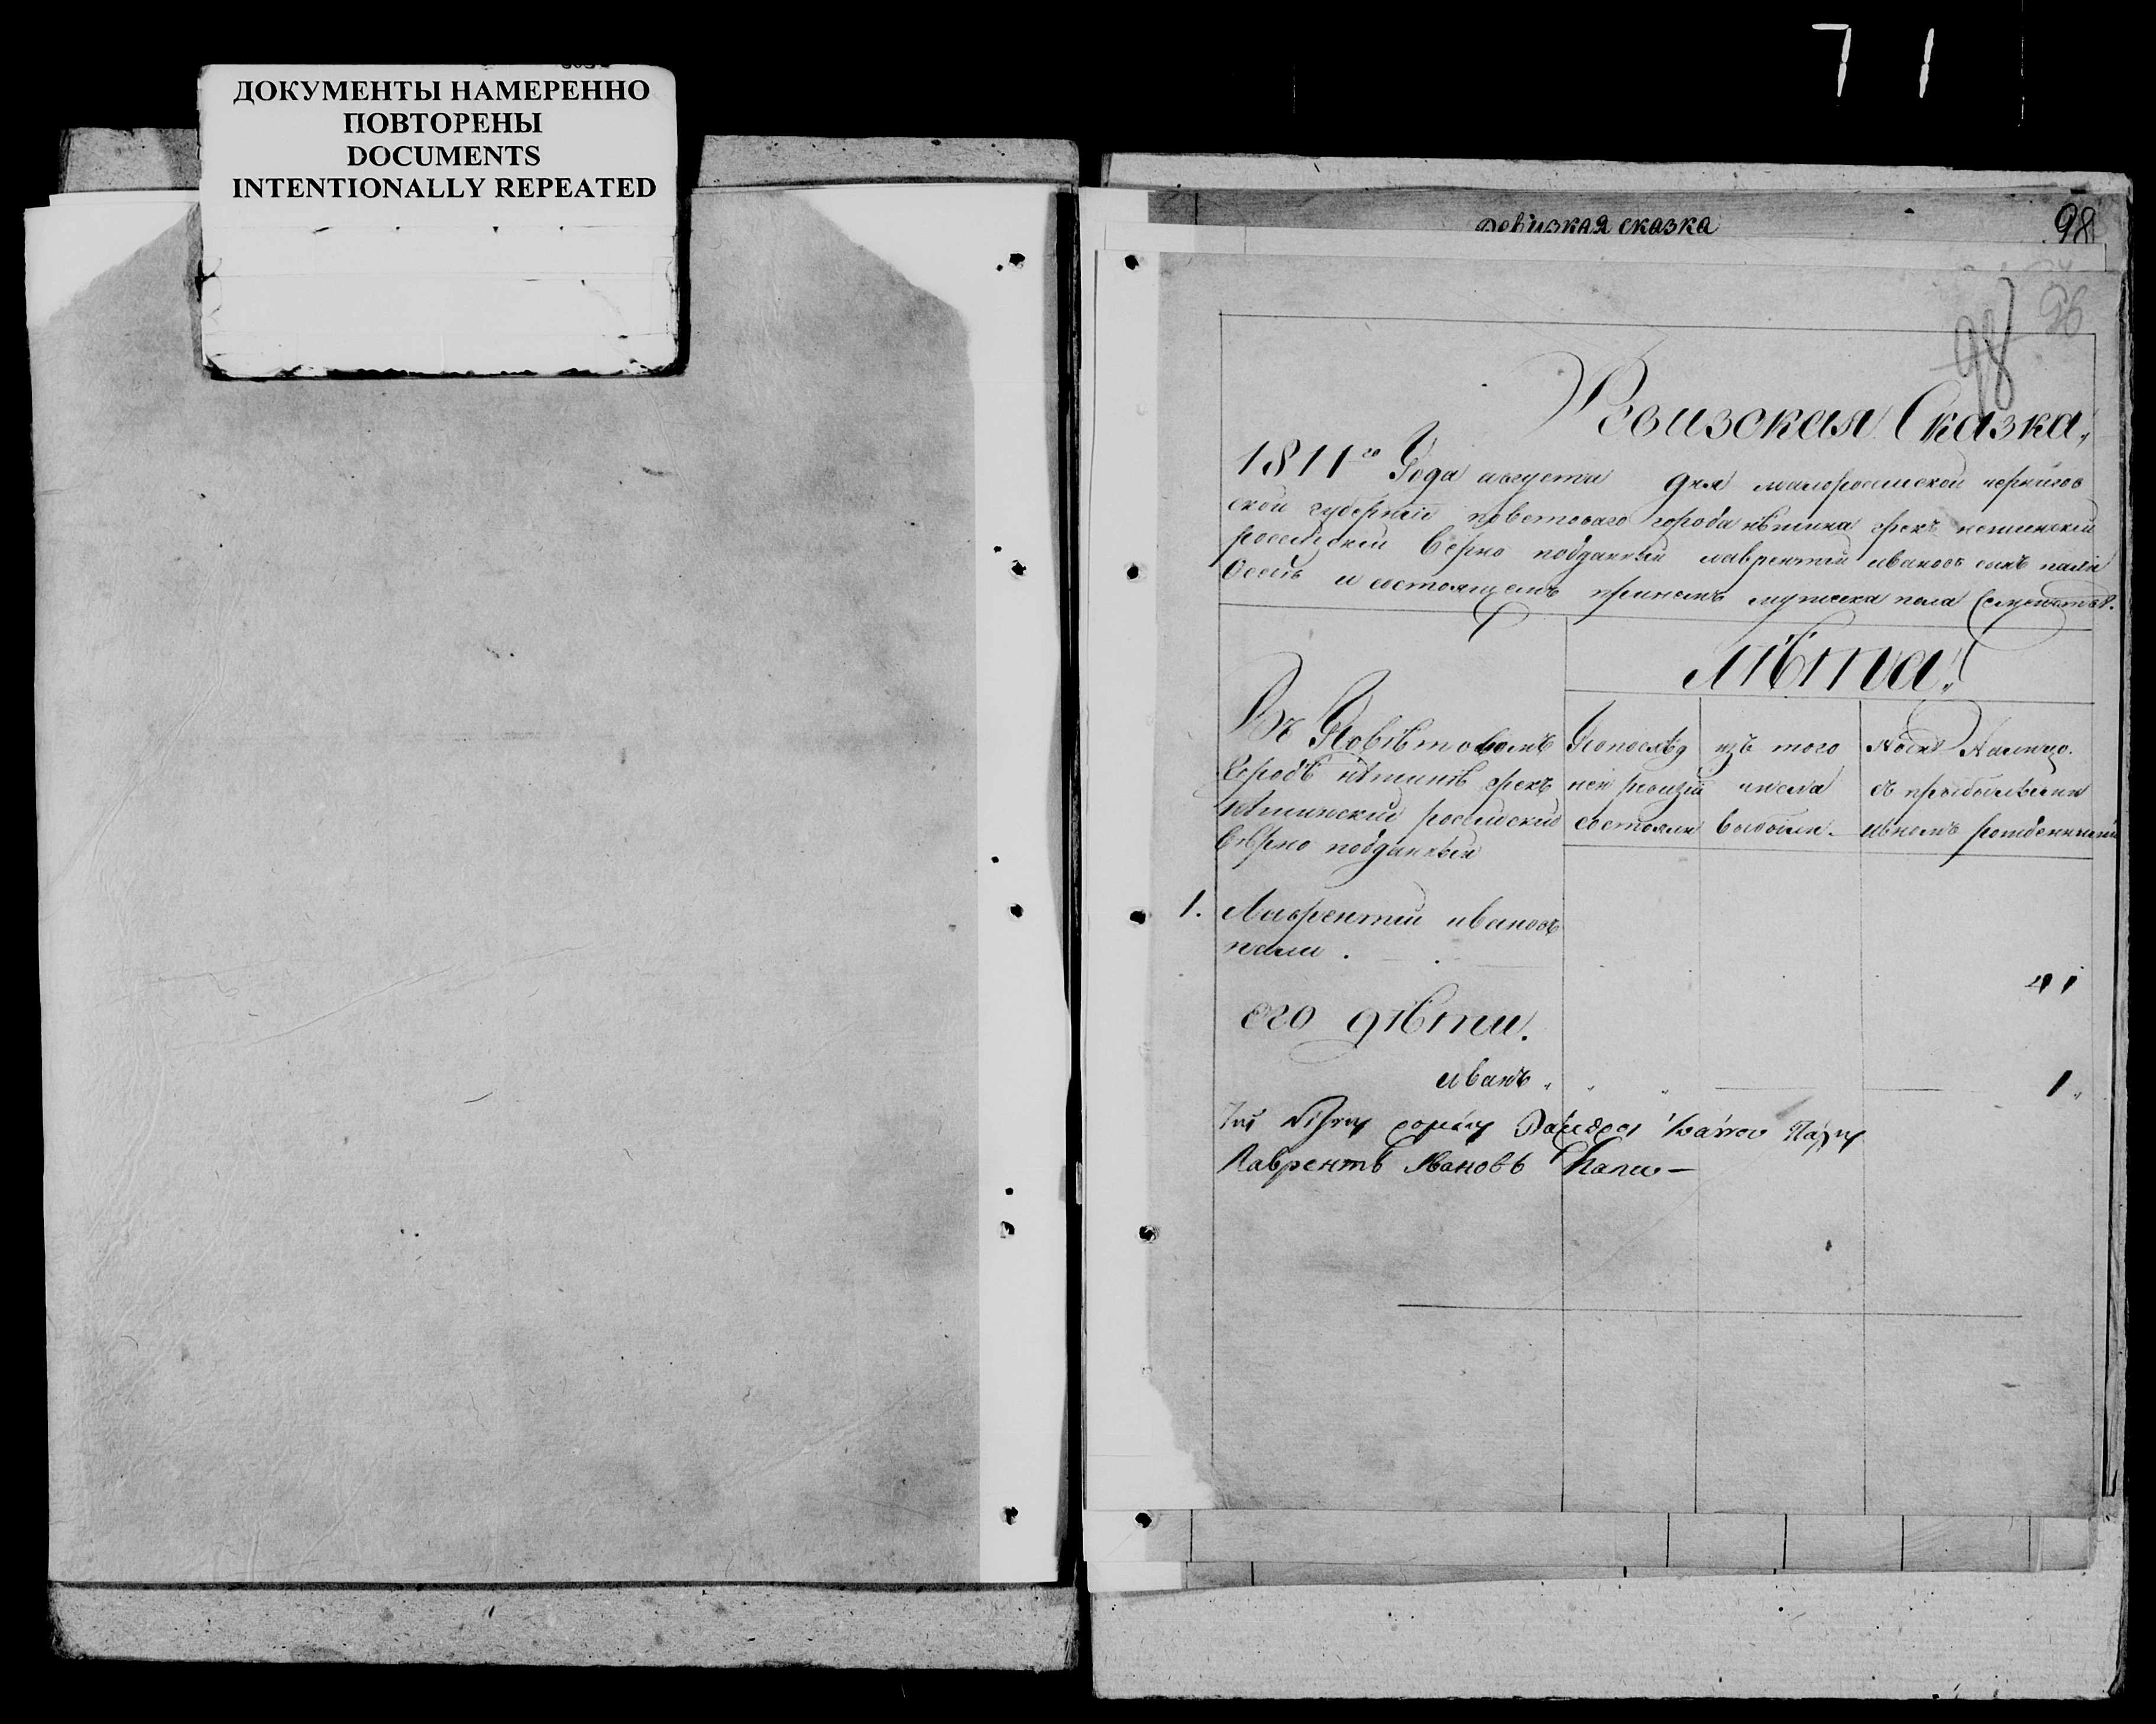 71
ДОКУМЕНТЫ НАМЕРЕННО
ПОВТОРЕНЫ
DOCUMENTS
INTENTIONALLY REPEATED
Ревизкая сказка
98
96
98
Ревизская Сказка,
1811го Года августа дня малороссиской чернигов
ской губернии поветоваго города нѣжина грекъ нежинский
россииский верно подданный лаврентий ивановъ сынъ пали
Осебѣ и состоящемъ принемъ мужеска пола семействѣ.
лѣта.
Въ Повѣтовомъ
городѣ нѣжинѣ грекъ
нѣжинский россииский
вѣрно подданный
Попослѣд
ней ревизіи
состояли
изъ того
числа
выбыли.
Нынѣ Налицо.
съ прибылыми
ивновь рожденными
1. Лаврентий ивановъ
пали.
41
его дѣти.
иванъ
1
Ἰωάννου Πάλη
Лаврентъ Ивановъ Пали